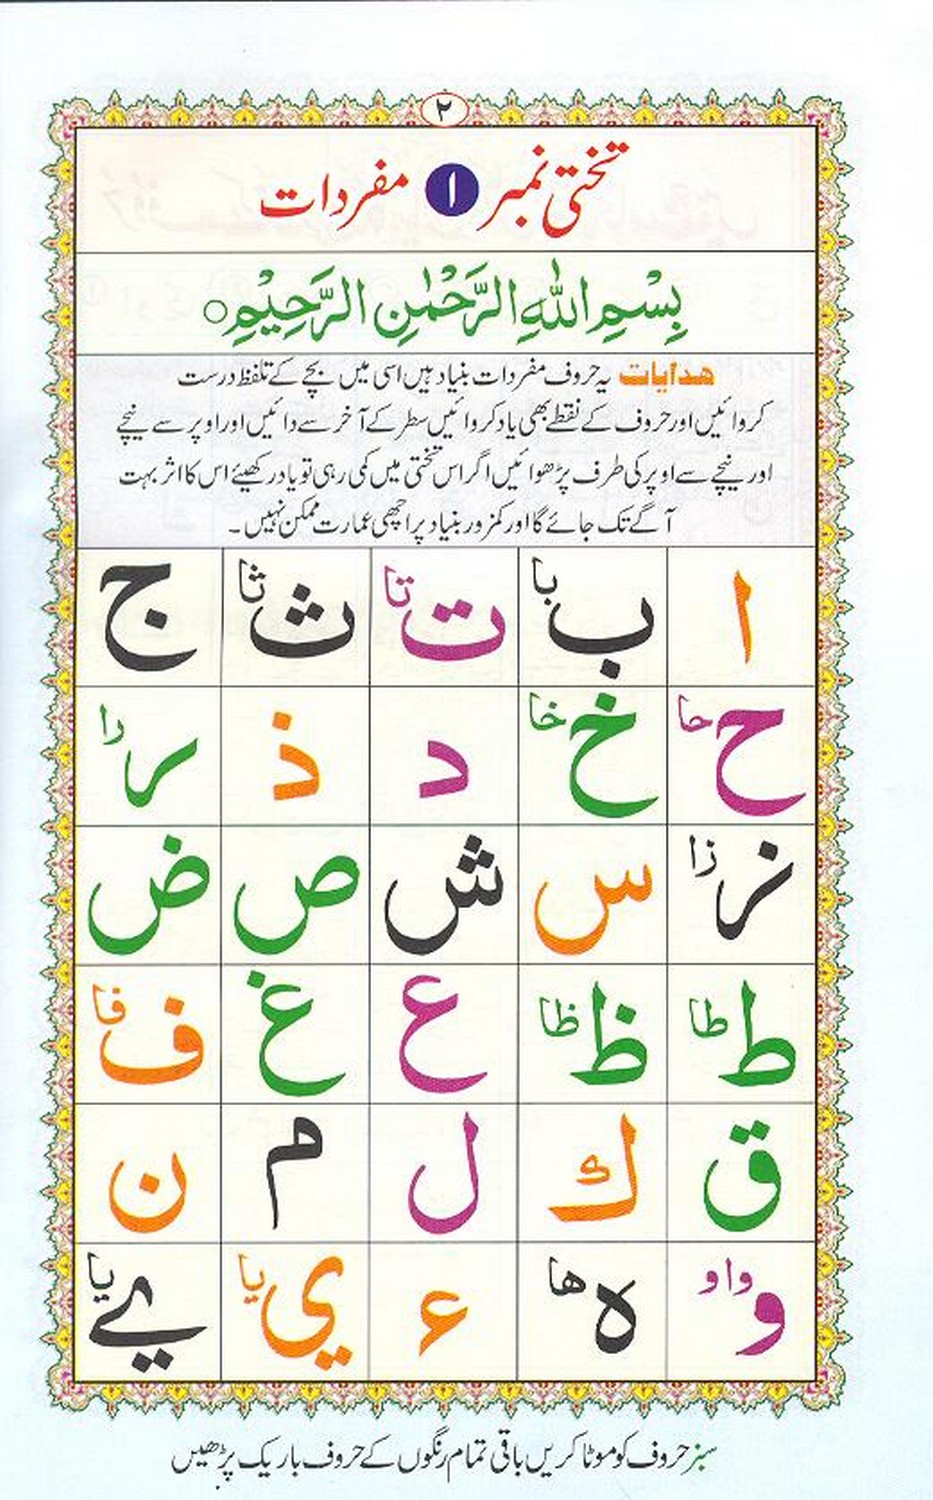 ۲
تختی نمبر ۱ مفردات
بِسْمِ اللّٰهِ الرَّحْمٰنِ الرَّحِيْمِ ○
ھدایات یہ حروف مفردات بنیاد ہیں اسی میں بچے کے تلفظ درست
کروائیں اور حروف کے نقطے بھی یاد کروائیں سطر کے آخر سے دائیں اور اوپر سے نیچے
اور نیچے سے اوپر کی طرف پڑھوائیں اگر اس تختی میں کمی رہی تو یاد رکھیئے اس کا اثر بہت
آگے تک جائے گا اور کمزور بنیاد پر اچھی عمارت ممکن نہیں۔
ا ب با ت تا ث ثا ج
ح حا خ خا د ذ ر را
ز زا س ش ص ض
ط طا ظ ظا ع غ ف فا
ق ك ل م ن
و واو ہ ھا ء ي یا ے یا
سبز حروف کو موٹا کریں باقی تمام رنگوں کے حروف باریک پڑھیں